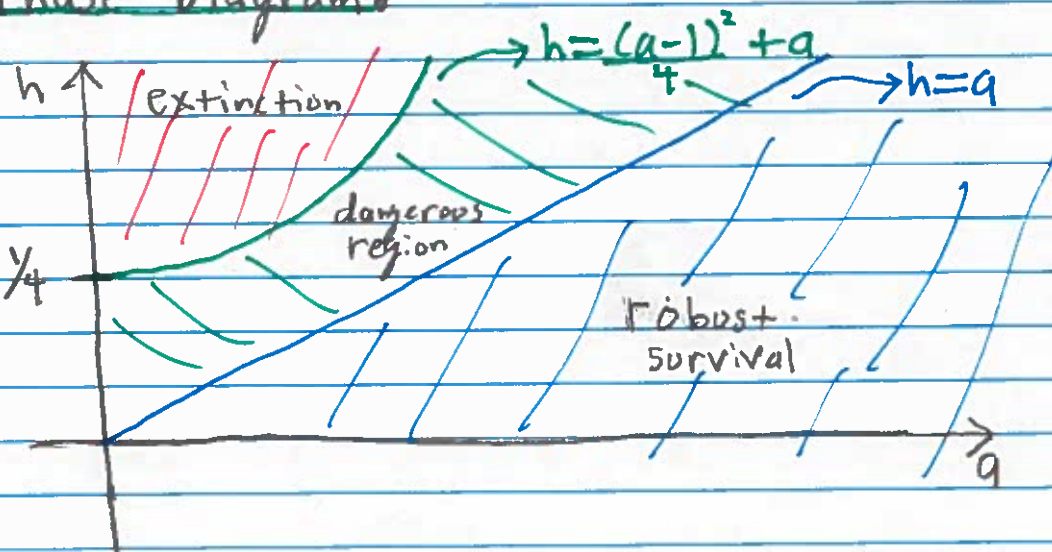 Phase Diagrams
h
extinction
h=(a-1)²/4 + a
h=a
dangerous
region
1/4
robust
survival
a